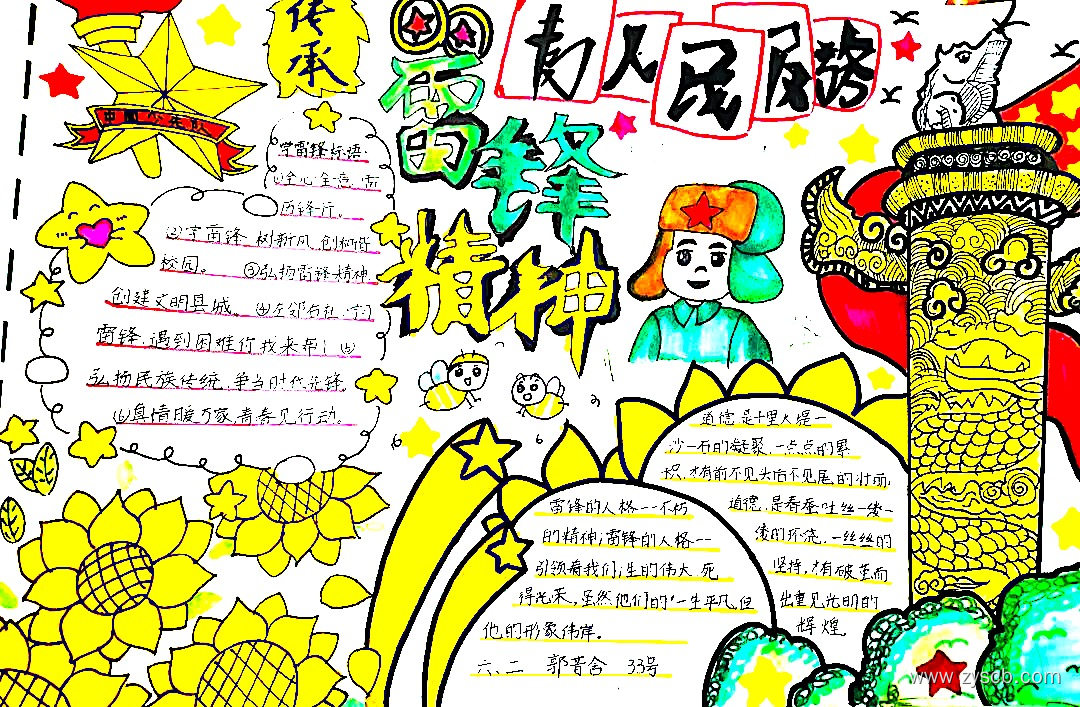 传承
雷锋
精神
中国少年队
学雷锋标语:
①全心全意,
②学雷锋 树新风 创和谐
校园。 ③弘扬雷锋精神
创建文明县城。④左邻右社,学习
雷锋,遇到困难你我来帮!⑤
弘扬民族传统,争当时代先锋
⑥真情暖万家,青春见行动。
道德,是千里人堤一
沙一石的凝聚,一点点的累
积,才有前不见头后不见尾的壮丽;
道德,是春蚕吐丝一缕一
缕的环绕,一丝丝的
坚持,才有破茧而
出重见光明的
辉煌
雷锋的人格--不朽
的精神;雷锋的人格--
引领着我们;生的伟大 死
得光荣,虽然他们的一生平凡,但
他的形象伟岸。
六、二 郭晋含 33号
www.zyscb.com